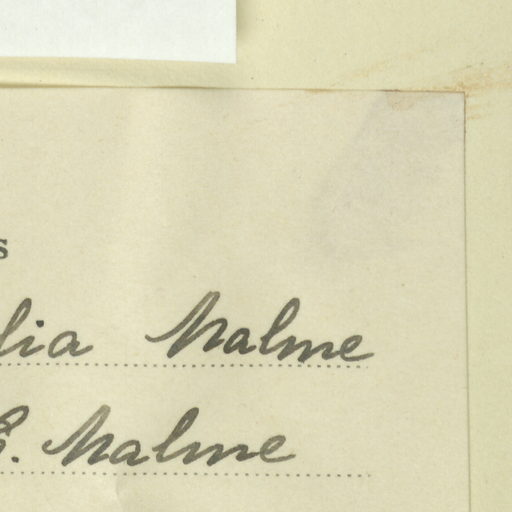 s
lia Malme
G. Malme